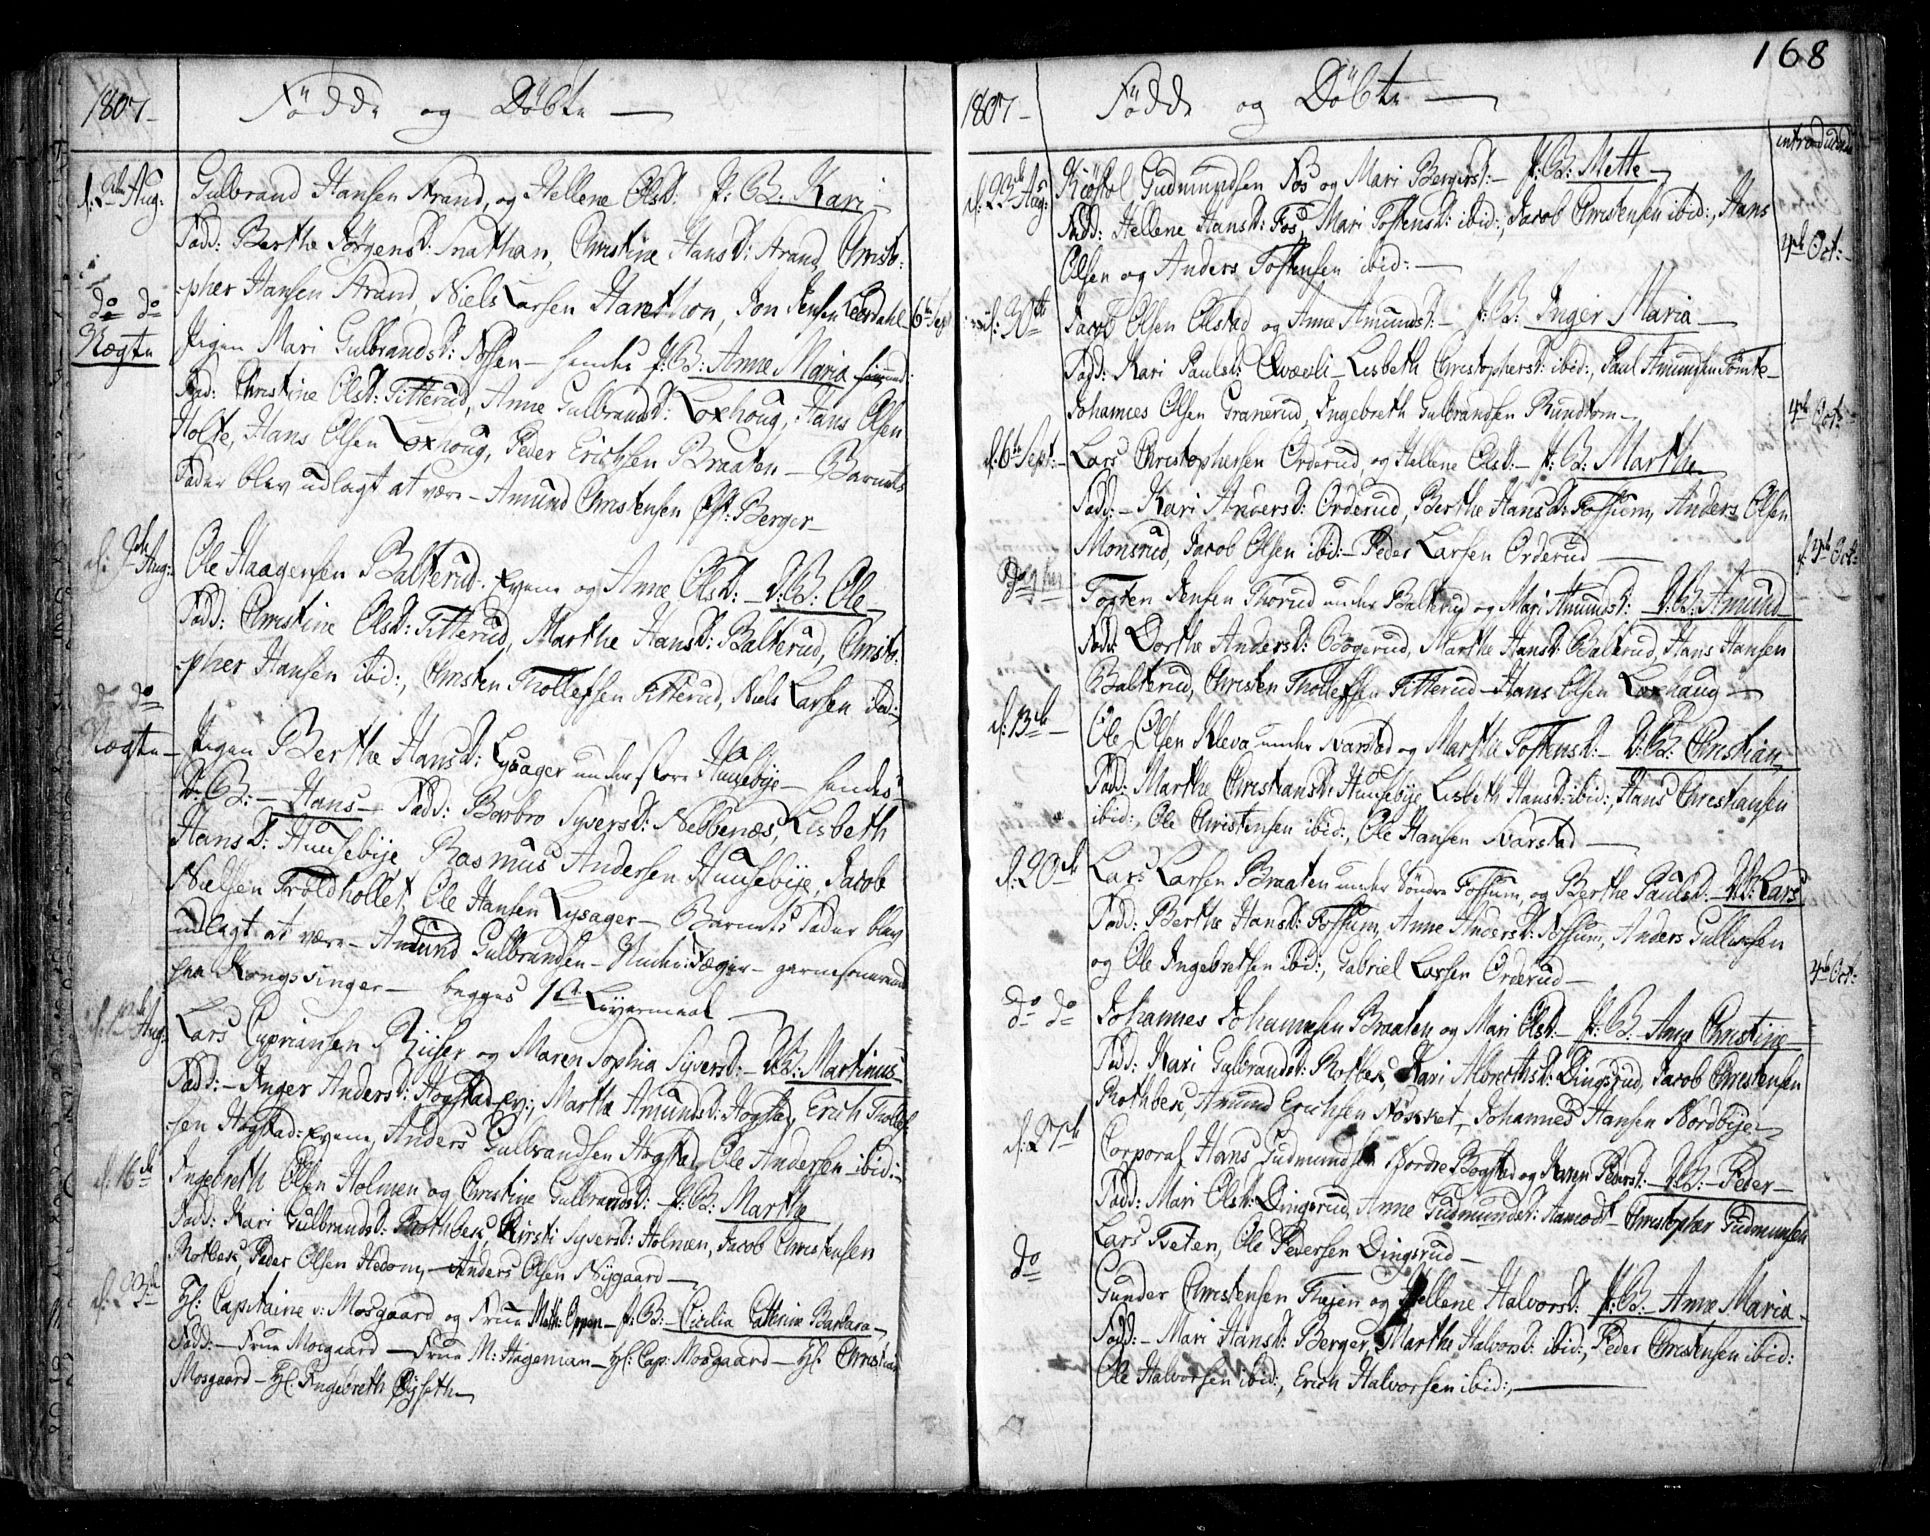 1807-
Födde og Döbte —
d: 2den Aug: Gulbrand Hansen Strand, og Hellene OlsD: P: B: Kari —
Fadd: Berthe JörgensD: Snathan, Christine HansD: Strand, Christo-
-pher Hansen Strand, Niels Larsen Hanethon, Jon Jensen Leerdahl
do do Pigen Mari GulbrandsD: Nossen — hendes P: B: Anne Maria 6te Sept
Uægte Fad: Christine OlsD: Titterud, Anne GulbrandsD: Loxhoug, Hans Olsen
Holte, Hans Olsen Loxhoug, Peder Erichsen Braaten — Barnets
Fader blev udlagt at være — Amund Christensen Berger —
d: Aug: Ole Haagensen Balterud Eyene og Anne OlsD: — D: B: Ole —
Fadd: Christine OlsD: Titterud, Marthe HansD: Balterud, Christo-
-pher Hansen ibid:, Christen Thollefsen Titterud, Niels Larsen ibid:
do do
Uægte — Pigen Berthe HansD: Lysager under store Huusebye — hendes
D: B: — Hans — Fadd: Barbro SyversD: Nebbenæs, Lisbeth
HansD: Huusebije, Rasmus Andersen Huusebije, Jacob
Nielsen Troldhollet, Ole Hansen Lysager — Barnets Fader blev
udlagt at være — Amund Gulbrandsen — garnisonerende
paa Kongssinger — begges 1te Leyermaal —
Aug: Lars Cypriansen Riiser og Maren Sophia SyversD: — D: B: Martinus —
Fadd: — Inger AndersD: Hogstad ey:, Marthe AmundsD: Hogstad, Erich Thollef-
-sen Hogstad: Eyene, Anders Gulbrandsen Hogstad, Ole Andersen ibid: —
d: 16de Ingebreth Olsen Holmen og Christine GulbrandsD: P: B: Marthe
Fadd: Kari GulbrandsD: Rothbek, Kirsti SyversD: Holmen, Jacob Christensen
Rotbek, Peder Olsen Hedom, — Anders Olsen Nygaard —
d: 23de Hl: Capitaine v: Mosgaard og Frue Math: Oppen — P: B: — Cicilia Cathrine Barbara —
Fadd: — Frue Mosgaard — Frue M: Hageman — Hl: Cap: Mosgaard — Hl: Christian
Mosgaard — Hl: Ingebreth Öyseth —
168
1807-
Födde og Döbte —
introducerede
d: 23de Aug: Kiöstel Gudmundsen Fos og Mari BergersD: — P: B: Mette —
Fadd: Hellene HansD: Fos, Mari TostensD: ibid:, Jacob Christensen ibid:, Hans
Olsen og Anders Tostensen ibid: — 4de Oct: —
d: 30te Jacob Olsen Olstad og Anne AmundsD: — P: B: Inger Maria —
Fadd: Kari PaulsD: Qvævli — Lisbeth ChristophersD: ibid:, Paul Amundsen Tomte —
Johannes Olsen Granerud, Ingebreth Gulbrandsen Rundtom — 4de Oct: —
d: 6te Sept: — Lars Christophersen Orderud, og Hellene OlsD: — P: B: Marthe
Fadd: — Kari AndersD: Orderud, Berthe HansD: Fossum, Anders Olsen
Monsrud, Jacob Olsen ibid: — Peder Larsen Orderud — d: 4de Oct:
Tosten Jensen Thorud under Balterud og Mari AmundsD: D: B: Amund
Fadd: Dorthe AndersD: Bögerud, Marthe HansD: Balterud, Hans Hansen
Balterud, Christen Thollefsen Titterud — Hans Olsen Loxhaug —
d: 13de — Ole Olsen Kleva under Narstad og Marthe TostensD: — D: B: Christian
Fadd: Marthe ChristiansD: Huusebije, Lisbeth HansD: ibid:, Hans Christiansen
ibid:, Ole Christensen ibid:, Ole Hansen Narstad —
d: 20de Lars Larsen Braaten under Söndre Fossum, og Berthe PaulsD: — D: B: Lars
Fadd: Berthe HansD: Fossum, Anne AndersD: Fossum, Anders Gullixsen
og Ole Ingebretsen ibid:, Gabriel Larsen Orderud — 4de Oct:
do do Johannes Johannesen Braaten og Mari OlsD: — P: B: Anne Christine —
Fadd: Kari GulbrandsD: Rotbek, Kari AlbrethsD: Dingsrud, Jacob Christensen
Rothbek, Amund Erichsen Noskret, Johannes Hansen Nordbije —
d: 27de Corporal Hans Gudmundsen Nordre Bogstad og Karen PedersD: — D: B: — Peder —
Fadd: Mari OlsD: Dingsrud, Anne GudmundsD: Aamodt — Christopher Gudmundsen
Lars Tveten, Ole Pedersen Dingsrud —
do Gunder Christensen Thajen og Hellene HalvorsD: P: B: Anne Maria —
Fadd: — Mari HansD: Berger, Marthe HalvorsD: ibid:, Peder Christensen ibid:
Ole Halvorsen ibid:, Erich Halvorsen ibid:, —